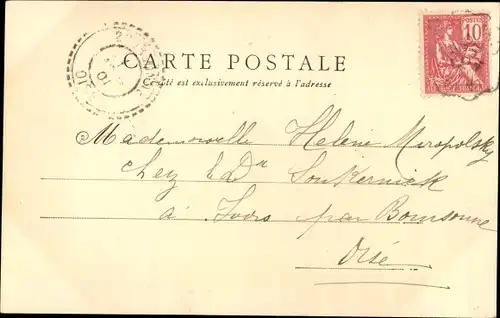 CARTE POSTALE
Ce côté est exclusivement réservé à l'adresse
POSTES
10
Mademoiselle Helene Miropolsky
chez le Dr
à Ivors par Boursonne
Oise